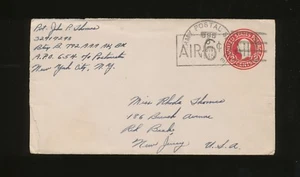 Pvt. John P. Thomas
32917298
Btry B. 772 AAA
A.P.O. 654 c/o Postmaster
New York City, N.Y.
U.S. POSTAL
AIR 6¢
Miss Rhoda Thomas
186 Beech Avenue
Red Bank,
New Jersey U.S.A.